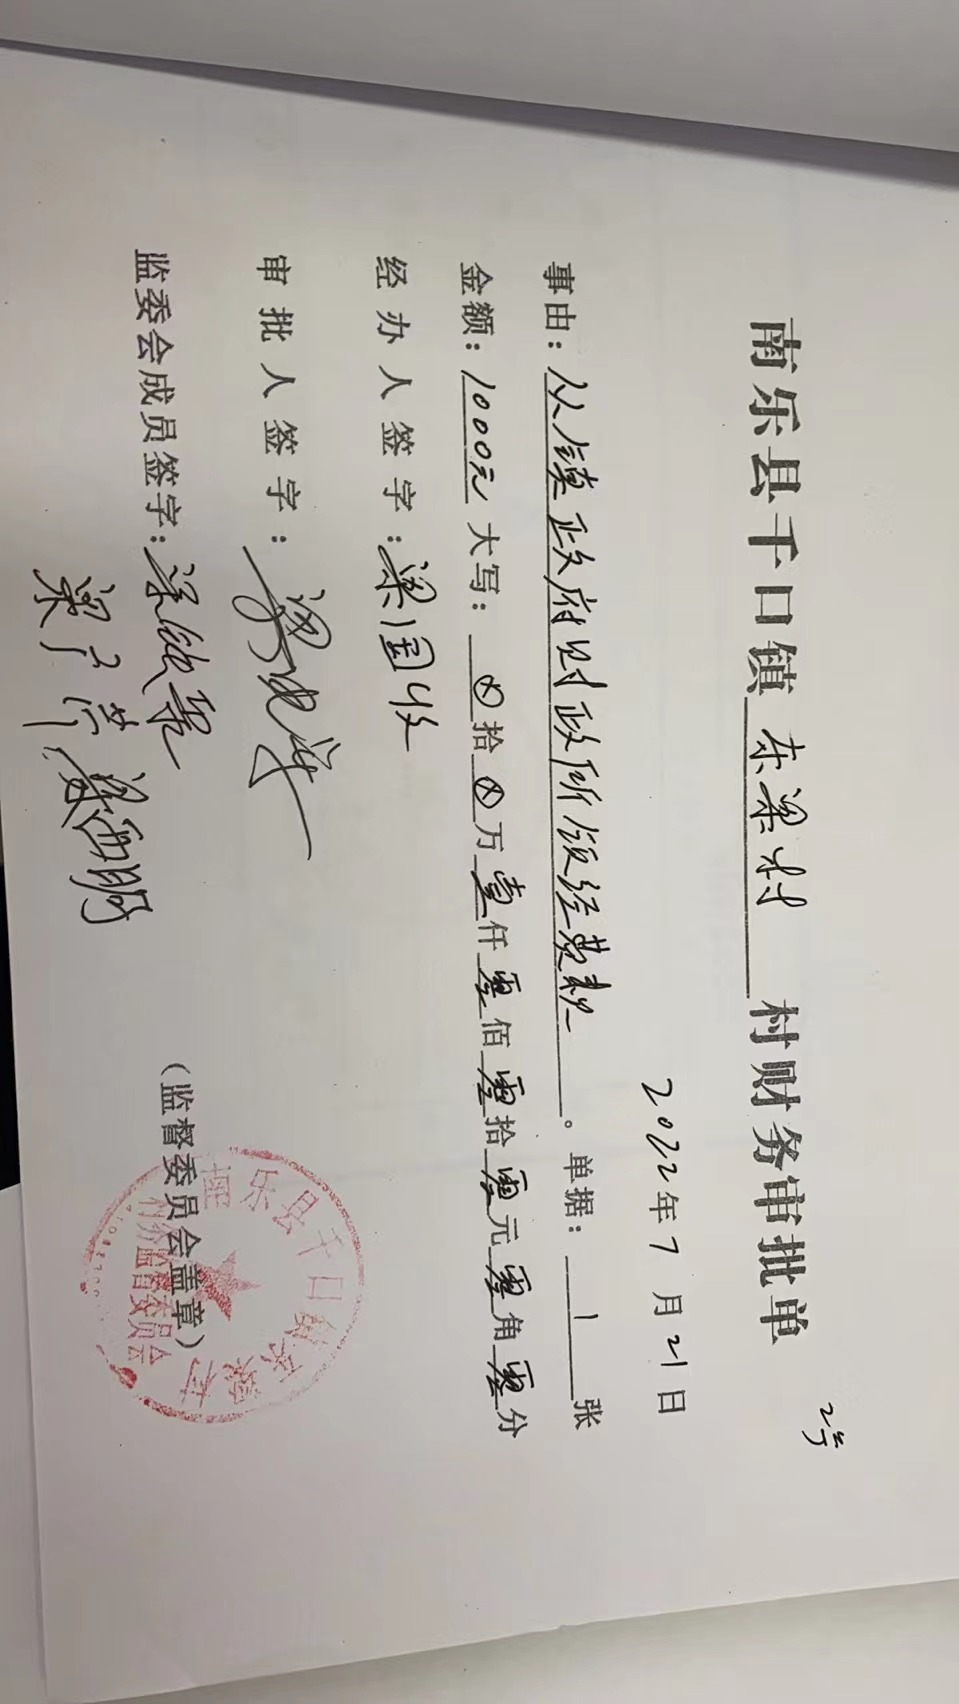 2号
南乐县千口镇东梁村村财务审批单
2022年7月21日
事由：从镇政府财政所领经费款。单据：1张
金额：1000元大写：⊗拾⊗万壹仟零佰零拾零元零角零分
经办人签字：梁国收
审批人签字：
监委会成员签字：
（监督委员会盖章）
南乐县千口镇东梁村
村务监督委员会